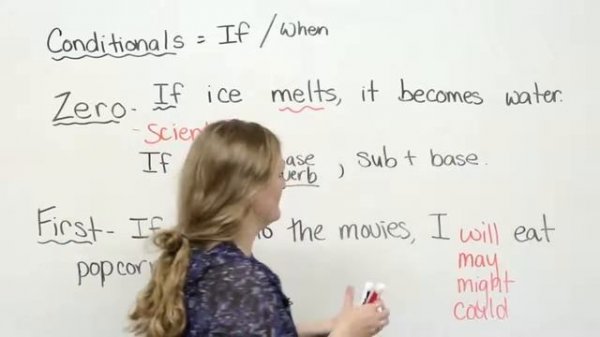 Conditionals = If / when
Zero - If ice melts, it becomes water.
- Scien
If base verb, sub + base.
First - If to the movies, I will eat
popcor may
might
could